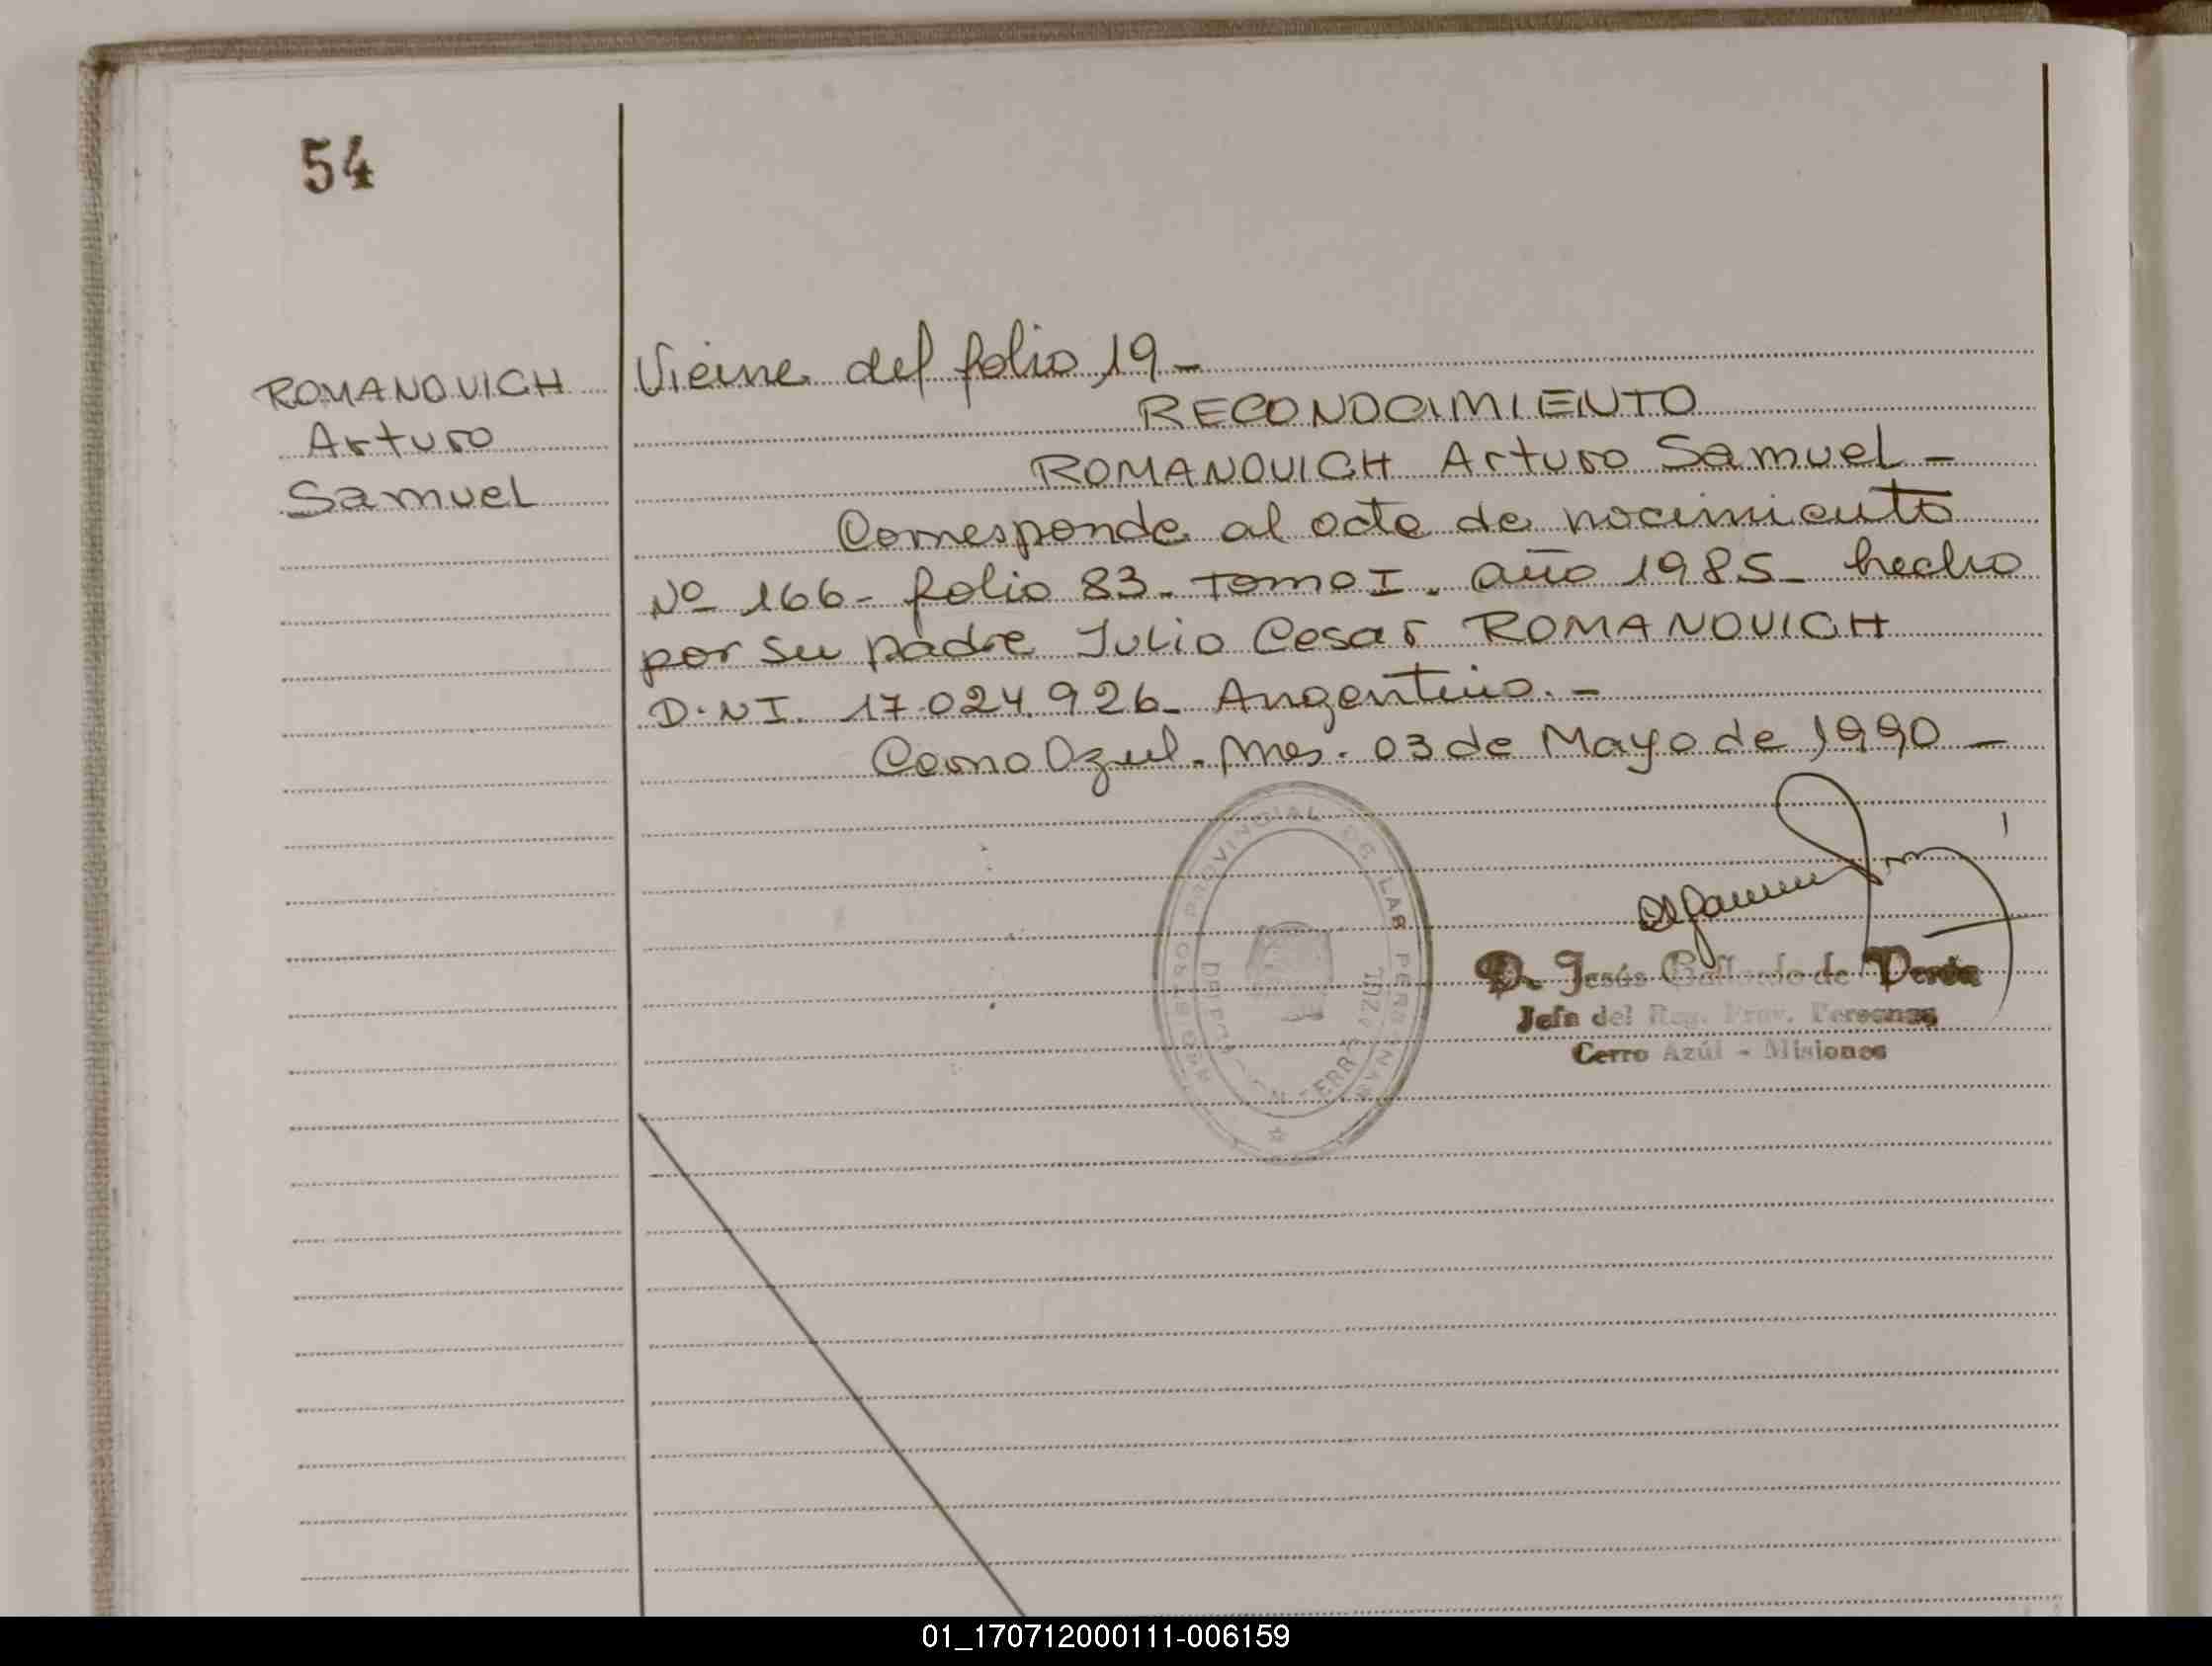 54
ROMANOVICH
Arturo
Samuel
Viene del folio 19-
RECONOCIMIENTO
ROMANOVICH Arturo Samuel-
Corresponde al acta de nacimiento
Nº 166- folio 83- Tomo I. año 1985- hecho
por su padre Julio Cesar ROMANOVICH
D.N.I. 17.024.926- Argentino.-
Cerro Azul. Mes. 03 de Mayo de 1990-
PROVINCIAL DE LAS PERSONAS
D. Jesús Gallardo de
Jefa del Reg. Prov. Personas
Cerro Azúl - Misiones
01_170712000111-006159